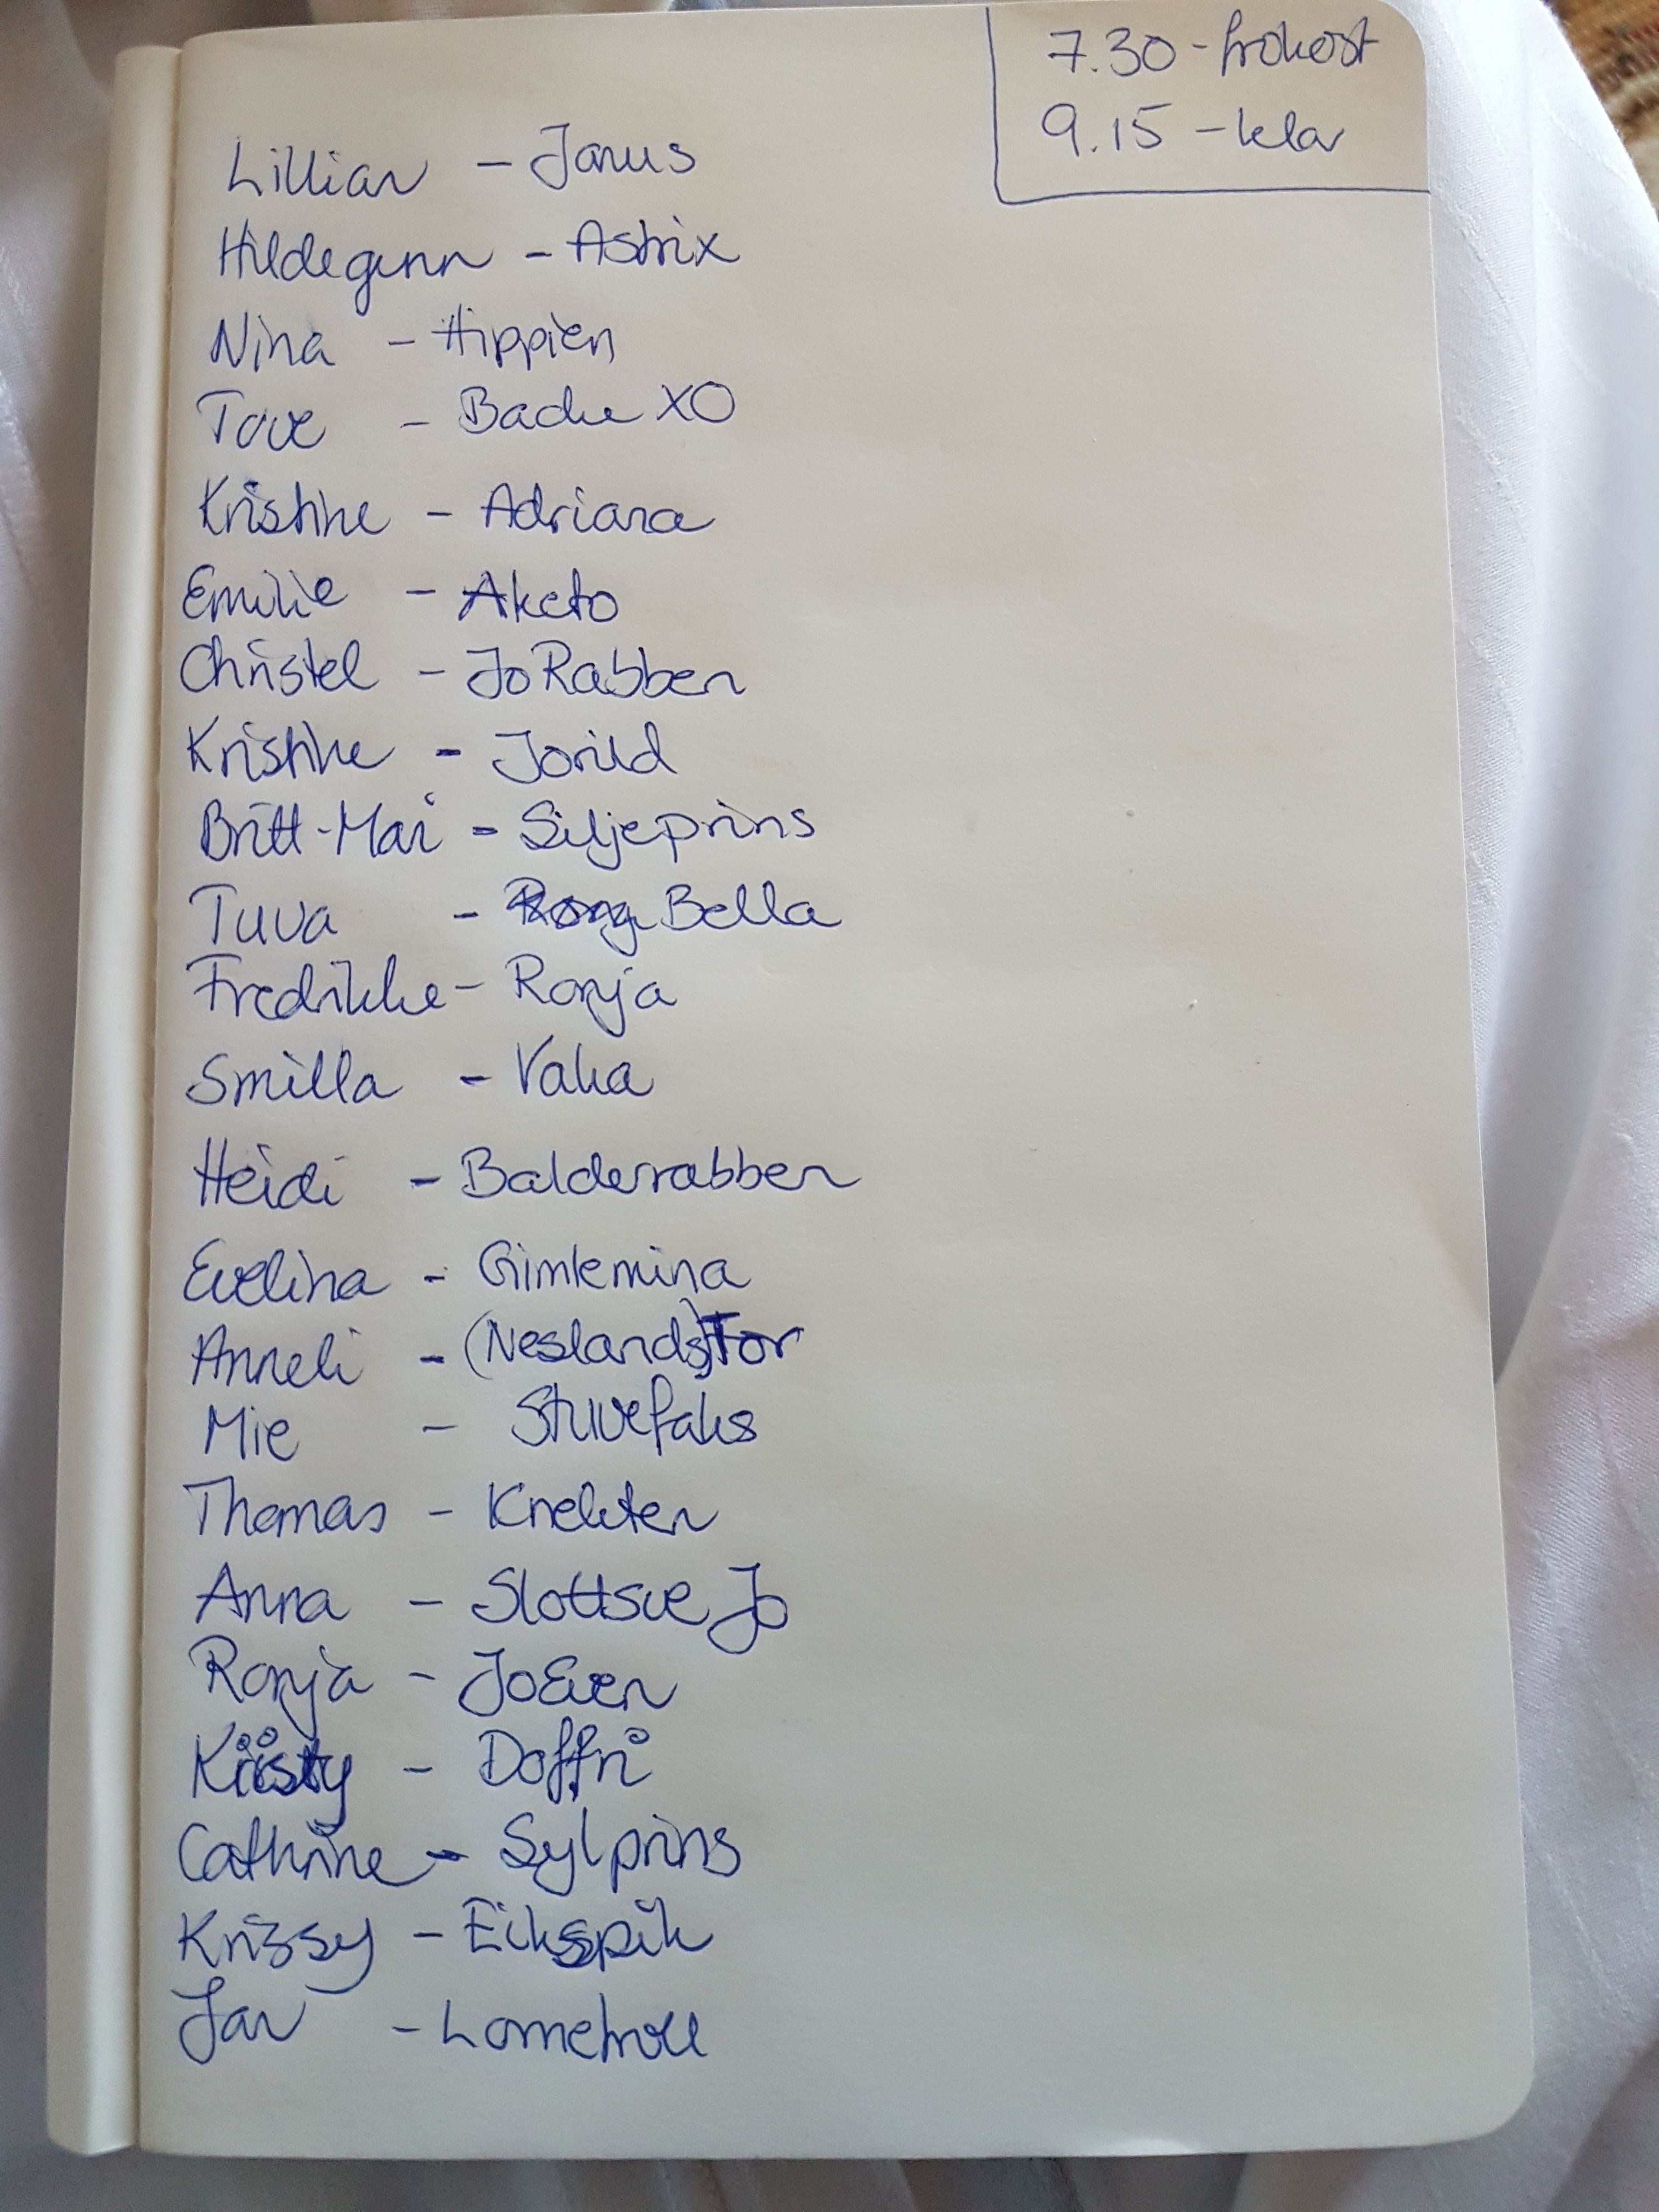 7.30 - frokost
9.15 - klar
Lillian - Janus
Hildegunn - Astrix
Nina - Hippien
Tove - Bache XO
Kristine - Adriana
Emilie - Aketo
Christel - Jo Rabben
Kristine - Jorild
Britt-Mai - Siljeprins
Tuva - Bella
Fredrikke - Ronja
Smilla - Vaka
Heidi - Balderrabben
Evelina - Gimlemina
Anneli - (Neslands) Tor
Mie - Stuvefaks
Thomas - Knekten
Anna - Slottsve Jo
Ronja - JoEven
Kirsty - Doffri
Cathrine - Sylprins
Krissy - Eikspik
Jan - Lometroll